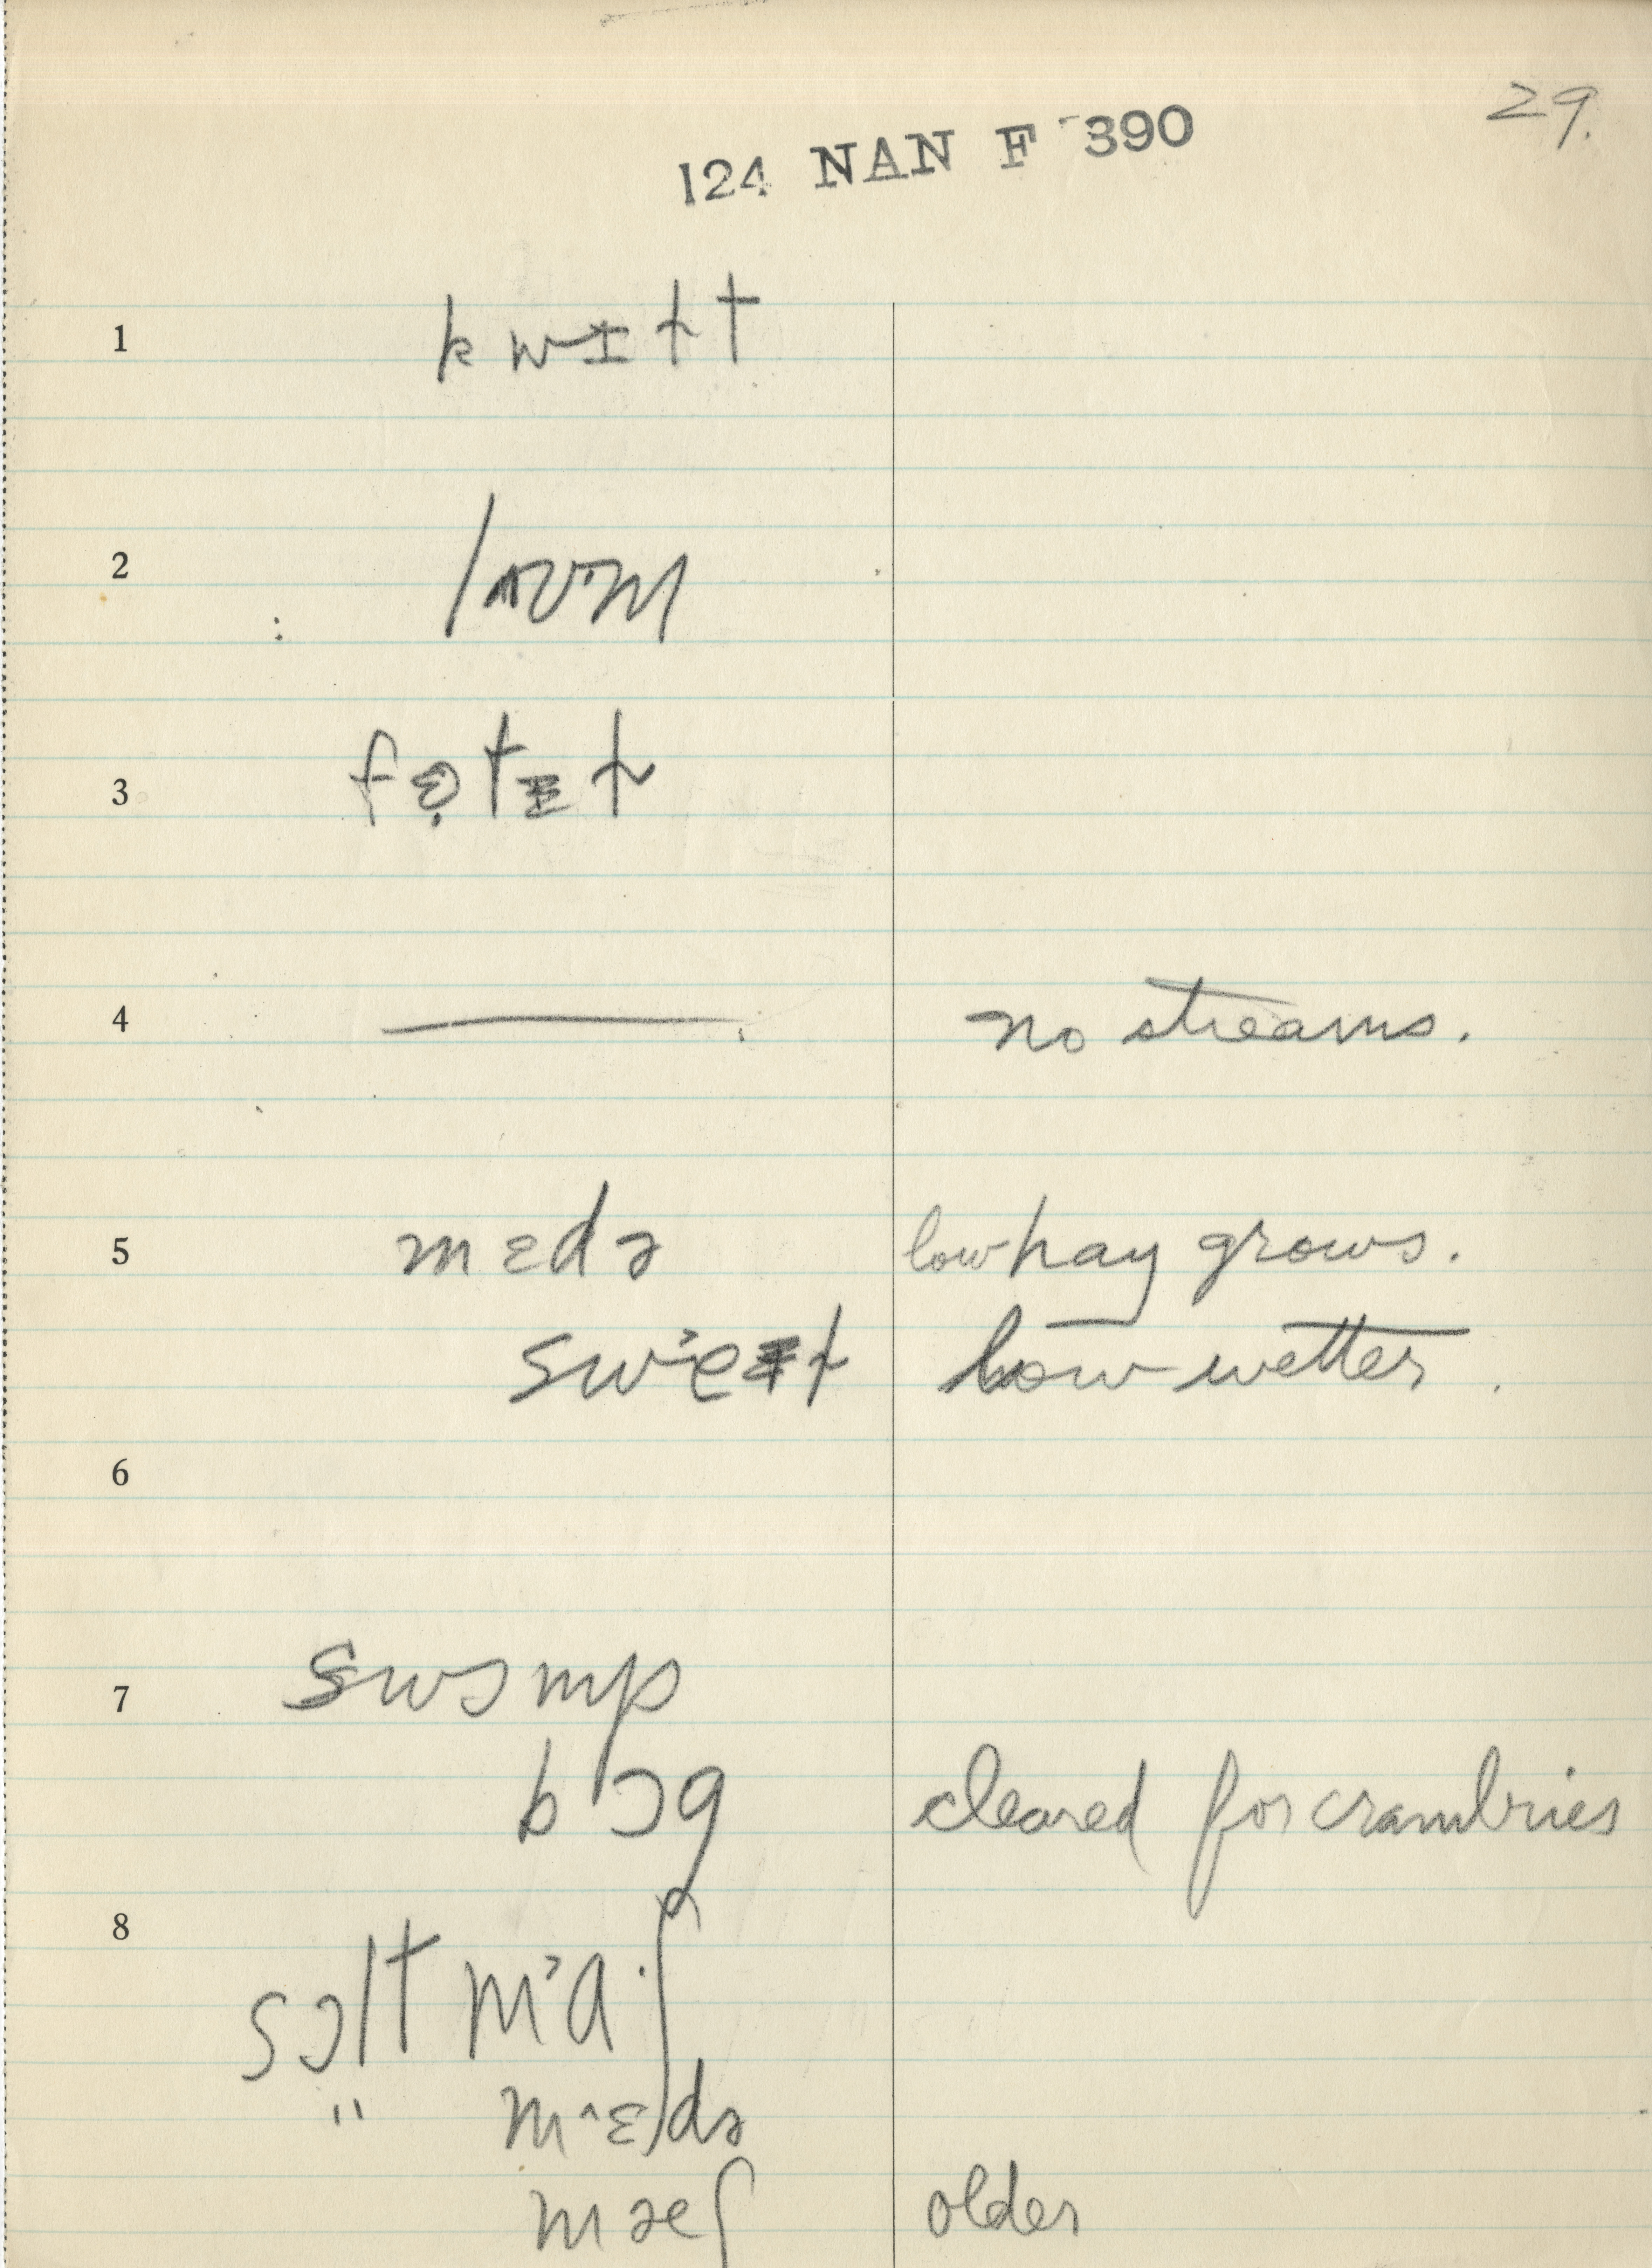 29.
124 NAN F 390
1 kwɪƚt
2
3
4 ——— no streams.
5 mɛdə low hay grows.
low wetter.
6
7 swɔmp
bɔg cleared for crambries
8
sɔlt m˃a·ʃ
" m˄ɛdə
mæʃ older